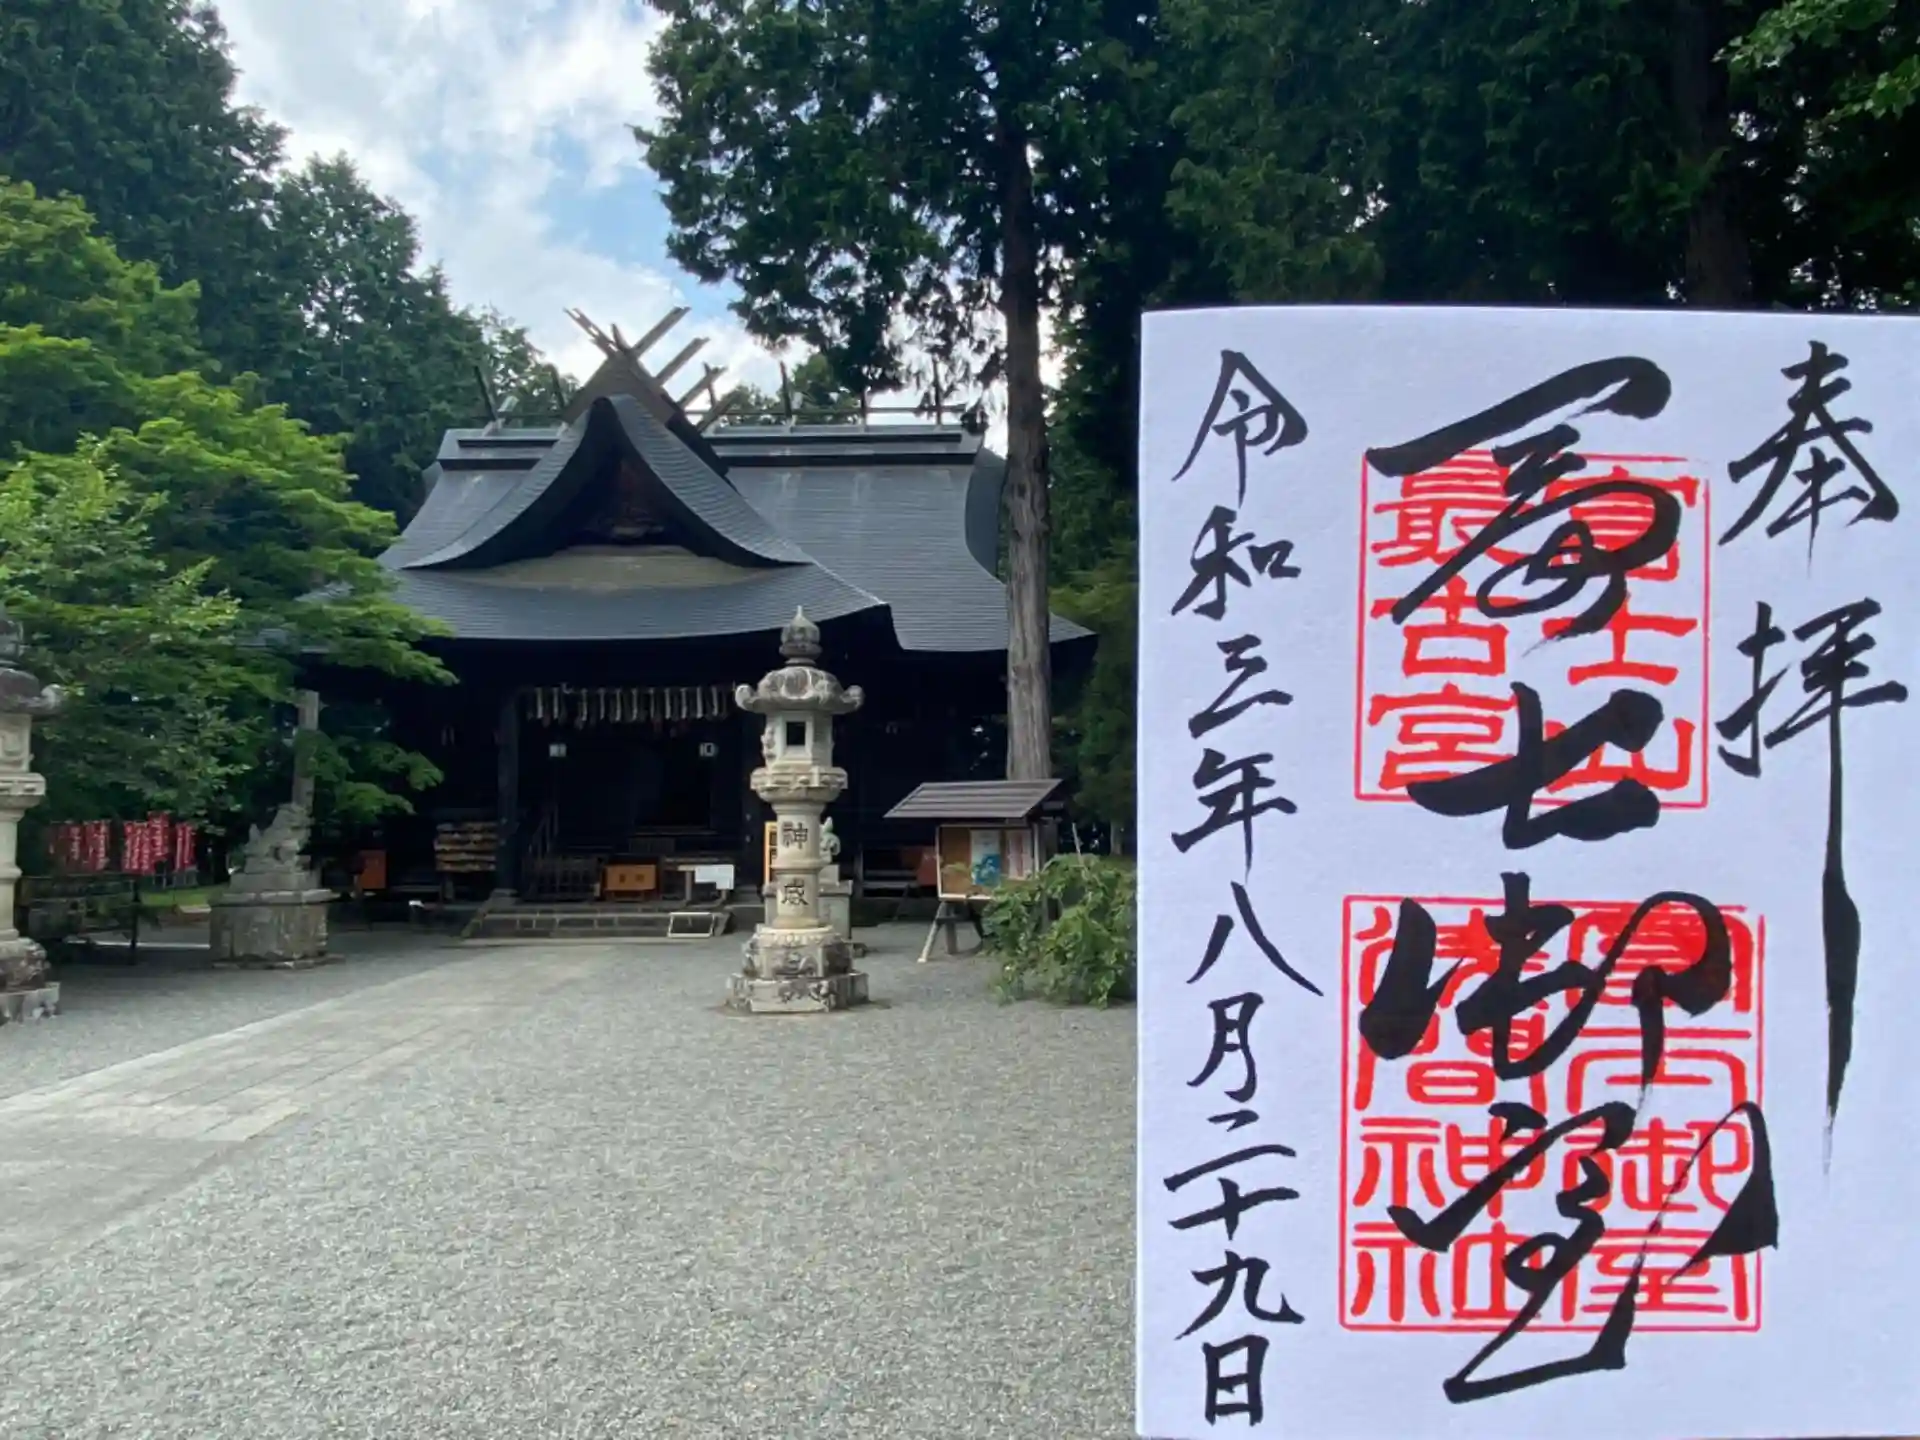 奉拝
富士御室
富士山
最古宮
冨士御室
浅間神社
令和三年八月二十九日
神威